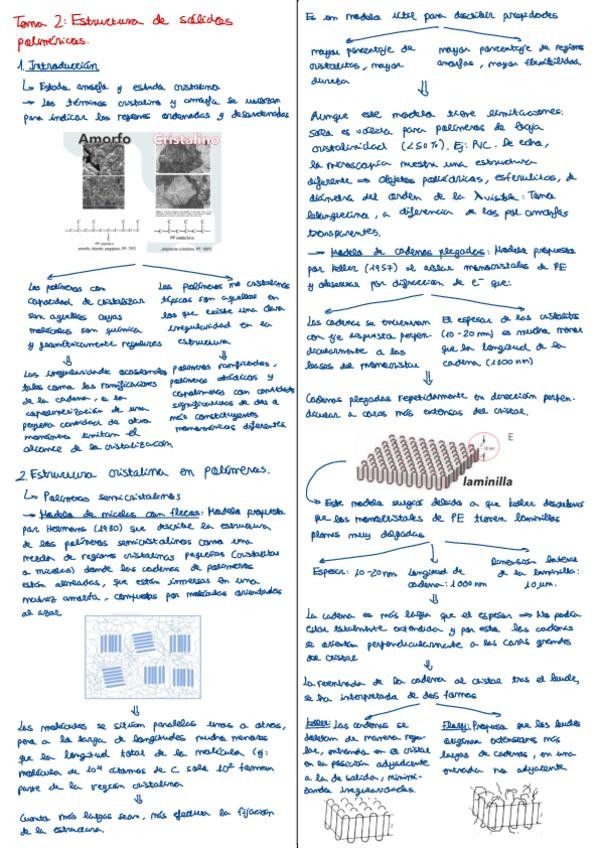 Tema 2: Estructura de sólidos
poliméricos.
1. Introducción
↳ Estado amorfo y estado cristalino
→ Los términos cristalino y amorfo se utilizan
para indicar las regiones ordenadas y desordenadas
Amorfo Cristalino
PP atáctico
PP isotáctico
Los polímeros con
capacidad de cristalizar
son aquellos cuyas
moléculas son química
y geométricamente regulares
Las irregularidades ocasionales
tales como las ramificaciones
de la cadena, o la
copolimerización de una
pequeña cantidad de otro
monómero limitan el
alcance de la cristalización
Los polímeros no cristalinos
típicos son aquellos en
los que existe una clara
irregularidad en la
estructura
polímeros ramificados,
polímeros atácticos y
copolímeros con cantidades
significativas de dos o
más constituyentes
monoméricos diferentes
2. Estructura cristalina en polímeros.
↳ Polímeros semicristalinos
→ Modelo de micelas con flecos: Modelo propuesto
por Hermans (1930) que describe la estructura
de los polímeros semicristalinos como una
mezcla de regiones cristalinas pequeñas (cristalitos
o micelas) donde las cadenas de polímeros
están alineadas, que están inmersas en una
matriz amorfa, compuestas por moléculas orientadas
al azar
Las moléculas se sitúan paralelas unas a otras,
pero a lo largo de longitudes mucho menores
que la longitud total de la molécula (ej:
molécula de 10⁴ átomos de C solo 10² forman
parte de la región cristalina
Cuanto más largas sean, más efectiva la fijación
de la estructura.
Es un modelo útil para describir propiedades
mayor porcentaje de
cristalitos, mayor
dureza
mayor porcentaje de regiones
amorfas, mayor flexibilidad
Aunque este modelo tiene limitaciones:
Solo es válido para polímeros de baja
cristalinidad (<50%). Ej: PVC. De echo,
la microscopía muestra una estructura
diferente ⇒ Objetos poliédricos, esferulitas, de
diámetro del orden de la λ visible: Tono
blanquecino, a diferencia de los pol. amorfos
transparentes.
→ Modelo de cadenas plegadas: Modelo propuesto
por Keller (1957) al aislar monocristales de PE
y observar por difracción de e⁻ que:
Las cadenas se encuentran
con eje dispuesto perpen-
dicularmente a las
bases del monocristal
El espesor de los cristalitos
(10-20 nm) es mucho menor
que la longitud de la
cadena (1000 nm)
Cadenas plegadas repetidamente en dirección perpen-
dicular a caras más extensas del cristal.
E
laminilla
Este modelo surgió debido a que Keller descubrió
que los monocristales de PE tienen laminillas
planas muy delgadas
Espesor: 10-20 nm
longitud de
cadena: 1000 nm
dimensión lateral
de la laminilla:
10 μm.
La cadena es más larga que el espesor → No podía
estar totalmente extendida y por esto las cadenas
se orientan perpendicularmente a las caras grandes
del cristal
La reentrada de la cadena al cristal tras el bucle,
se ha interpretado de dos formas
Keller: Las cadenas se
doblan de manera regu-
lar, entrando en el cristal
en la posición adyacente
a la de salida, minimi-
zando irregularidades.
Flory: Propuso que los bucles
originan extensiones más
largas de cadenas, en una
entrada no adyacente